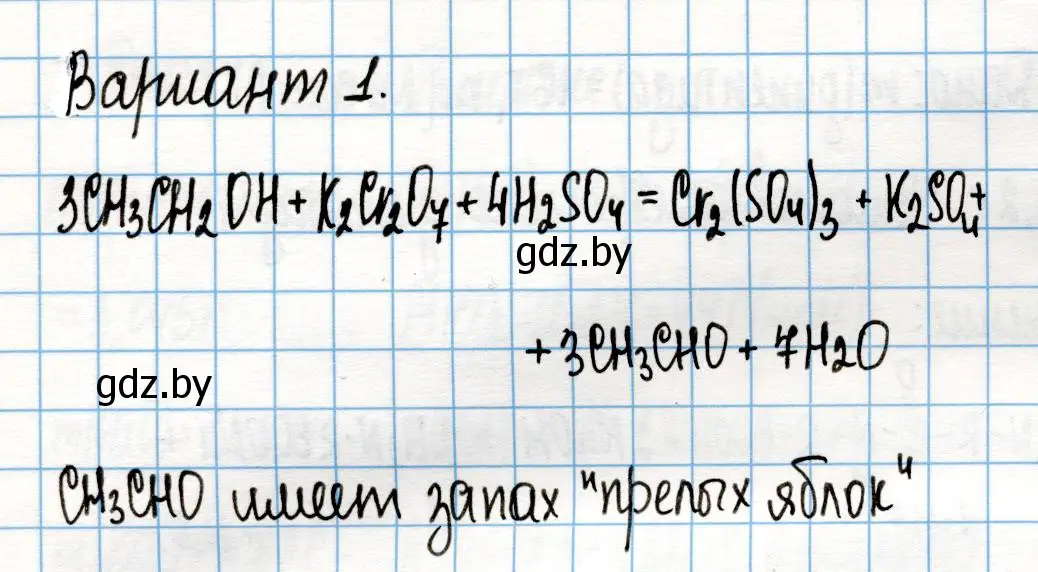 Вариант 1.
3CH₃CH₂OH + K₂Cr₂O₇ + 4H₂SO₄ = Cr₂(SO₄)₃ + K₂SO₄ +
gdz.by
+ 3CH₃CHO + 7H₂O
gdz.by
CH₃CHO имеет запах "прелых яблок"